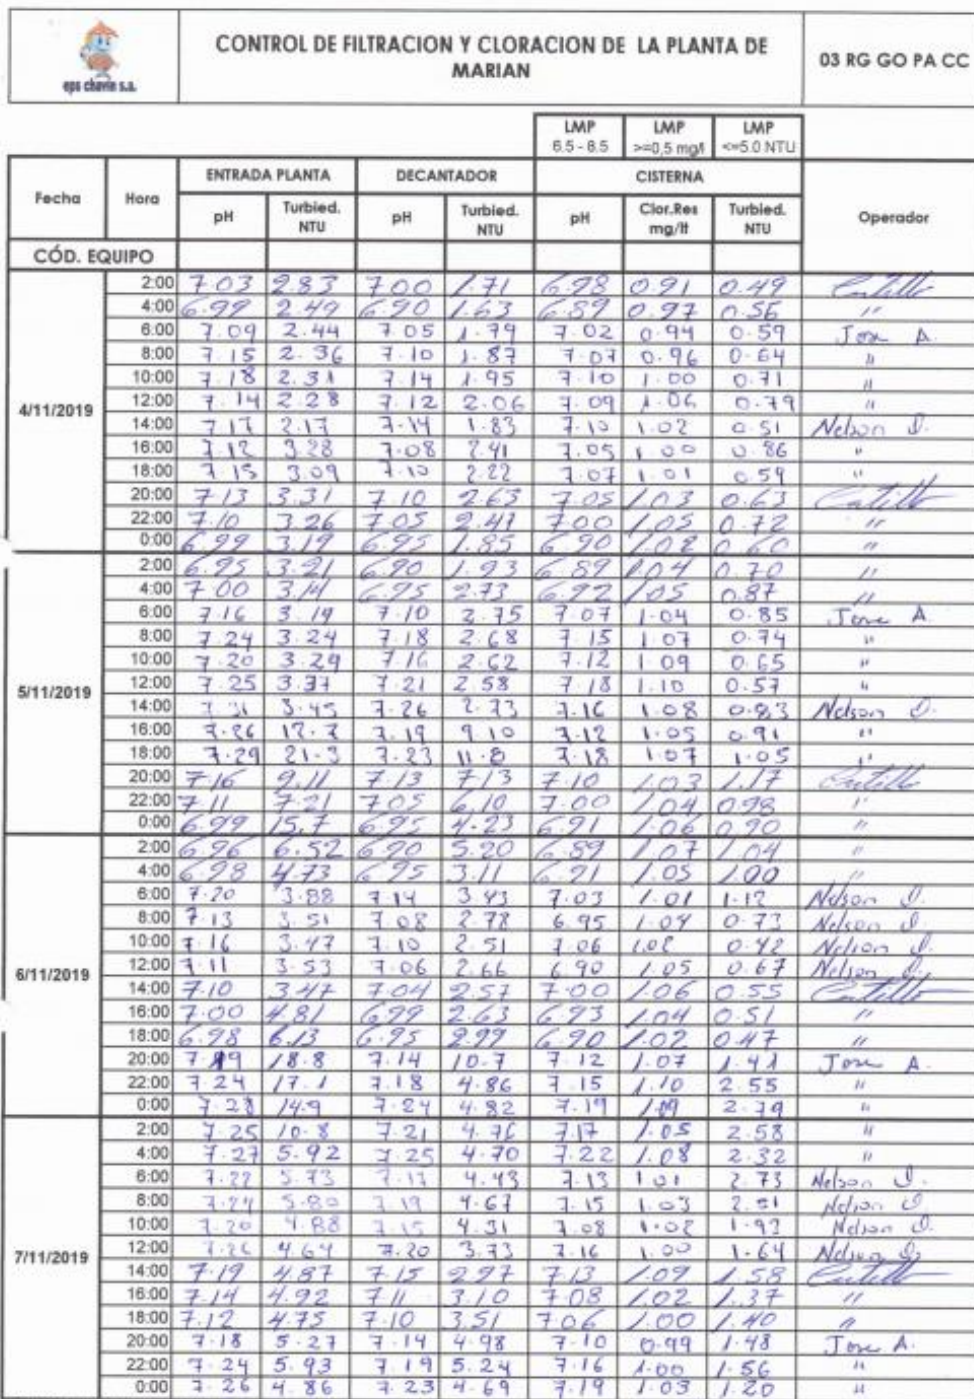 eps chavin s.a.
CONTROL DE FILTRACION Y CLORACION DE LA PLANTA DE
MARIAN
03 RG GO PA CC
LMP LMP LMP
6.5 - 8.5 >=0,5 mg/l <=5.0 NTU
Fecha Hora ENTRADA PLANTA DECANTADOR CISTERNA Operador
pH Turbied. NTU pH Turbied. NTU pH Clor.Res mg/lt Turbied. NTU
CÓD. EQUIPO
4/11/2019
2:00 7.03 2.83 7.00 1.71 6.98 0.91 0.49 Castillo
4:00 6.99 2.49 6.90 1.63 6.89 0.97 0.56 "
6:00 7.09 2.44 7.05 1.79 7.02 0.94 0.59 Jose A.
8:00 7.15 2.36 7.10 1.87 7.07 0.96 0.64 "
10:00 7.18 2.31 7.14 1.95 7.10 1.00 0.71 "
12:00 7.14 2.28 7.12 2.06 7.09 1.06 0.79 "
14:00 7.17 2.17 7.14 1.83 7.10 1.02 0.51 Nelson O.
16:00 7.12 3.28 7.08 2.41 7.05 1.00 0.86 "
18:00 7.15 3.09 7.10 2.22 7.07 1.01 0.59 "
20:00 7.13 3.31 7.10 2.63 7.05 1.03 0.63 Castillo
22:00 7.10 3.26 7.05 2.47 7.00 1.05 0.72 "
0:00 6.99 3.19 6.95 1.85 6.90 1.02 0.60 "
5/11/2019
2:00 6.95 3.21 6.90 1.93 6.89 1.04 0.70 "
4:00 7.00 3.14 6.95 2.73 6.92 1.05 0.87 "
6:00 7.16 3.19 7.10 2.75 7.07 1.04 0.85 Jose A
8:00 7.24 3.24 7.18 2.68 7.15 1.07 0.74 "
10:00 7.20 3.29 7.16 2.62 7.12 1.09 0.65 "
12:00 7.25 3.37 7.21 2.58 7.18 1.10 0.57 "
14:00 7.31 3.45 7.26 2.73 7.16 1.08 0.83 Nelson O.
16:00 7.26 17.7 7.19 9.10 7.12 1.05 0.91 "
18:00 7.29 21.3 7.23 11.8 7.18 1.07 1.05 "
20:00 7.16 9.11 7.13 7.13 7.10 1.03 1.17 Castillo
22:00 7.11 7.21 7.05 6.10 7.00 1.04 0.98 "
0:00 6.99 15.7 6.95 4.23 6.91 1.06 0.90 "
6/11/2019
2:00 6.96 6.52 6.90 5.20 6.89 1.07 1.04 "
4:00 6.98 4.73 6.95 3.11 6.91 1.05 1.00 "
6:00 7.20 3.88 7.14 3.43 7.03 1.01 1.12 Nelson O.
8:00 7.13 3.51 7.08 2.78 6.95 1.04 0.73 Nelson O.
10:00 7.16 3.47 7.10 2.51 7.06 1.02 0.42 Nelson O.
12:00 7.11 3.53 7.06 2.66 6.90 1.05 0.67 Nelson O.
14:00 7.10 3.47 7.04 2.57 7.00 1.06 0.55 Castillo
16:00 7.00 4.81 6.99 2.63 6.93 1.04 0.51 "
18:00 6.98 6.13 6.95 2.99 6.90 1.02 0.47 "
20:00 7.19 18.8 7.14 10.7 7.12 1.07 1.41 Jose A.
22:00 7.24 17.1 7.18 4.86 7.15 1.10 2.55 "
0:00 7.28 14.9 7.24 4.82 7.19 1.09 2.79 "
7/11/2019
2:00 7.25 10.8 7.21 4.76 7.17 1.05 2.58 "
4:00 7.27 5.92 7.25 4.70 7.22 1.08 2.32 "
6:00 7.22 5.73 7.17 4.43 7.13 1.01 2.73 Nelson O.
8:00 7.24 5.80 7.19 4.67 7.15 1.03 2.51 Nelson O.
10:00 7.20 4.88 7.15 4.31 7.08 1.02 1.93 Nelson O.
12:00 7.26 4.64 7.20 3.73 7.16 1.00 1.64 Nelson O.
14:00 7.19 4.87 7.15 2.97 7.13 1.09 1.58 Castillo
16:00 7.14 4.92 7.11 3.10 7.08 1.02 1.37 "
18:00 7.12 4.75 7.10 3.51 7.06 1.00 1.40 "
20:00 7.18 5.27 7.14 4.98 7.10 0.99 1.48 Jose A.
22:00 7.24 5.93 7.19 5.24 7.16 1.00 1.56 "
0:00 7.26 4.86 7.23 4.69 7.19 1.03 1.20 "